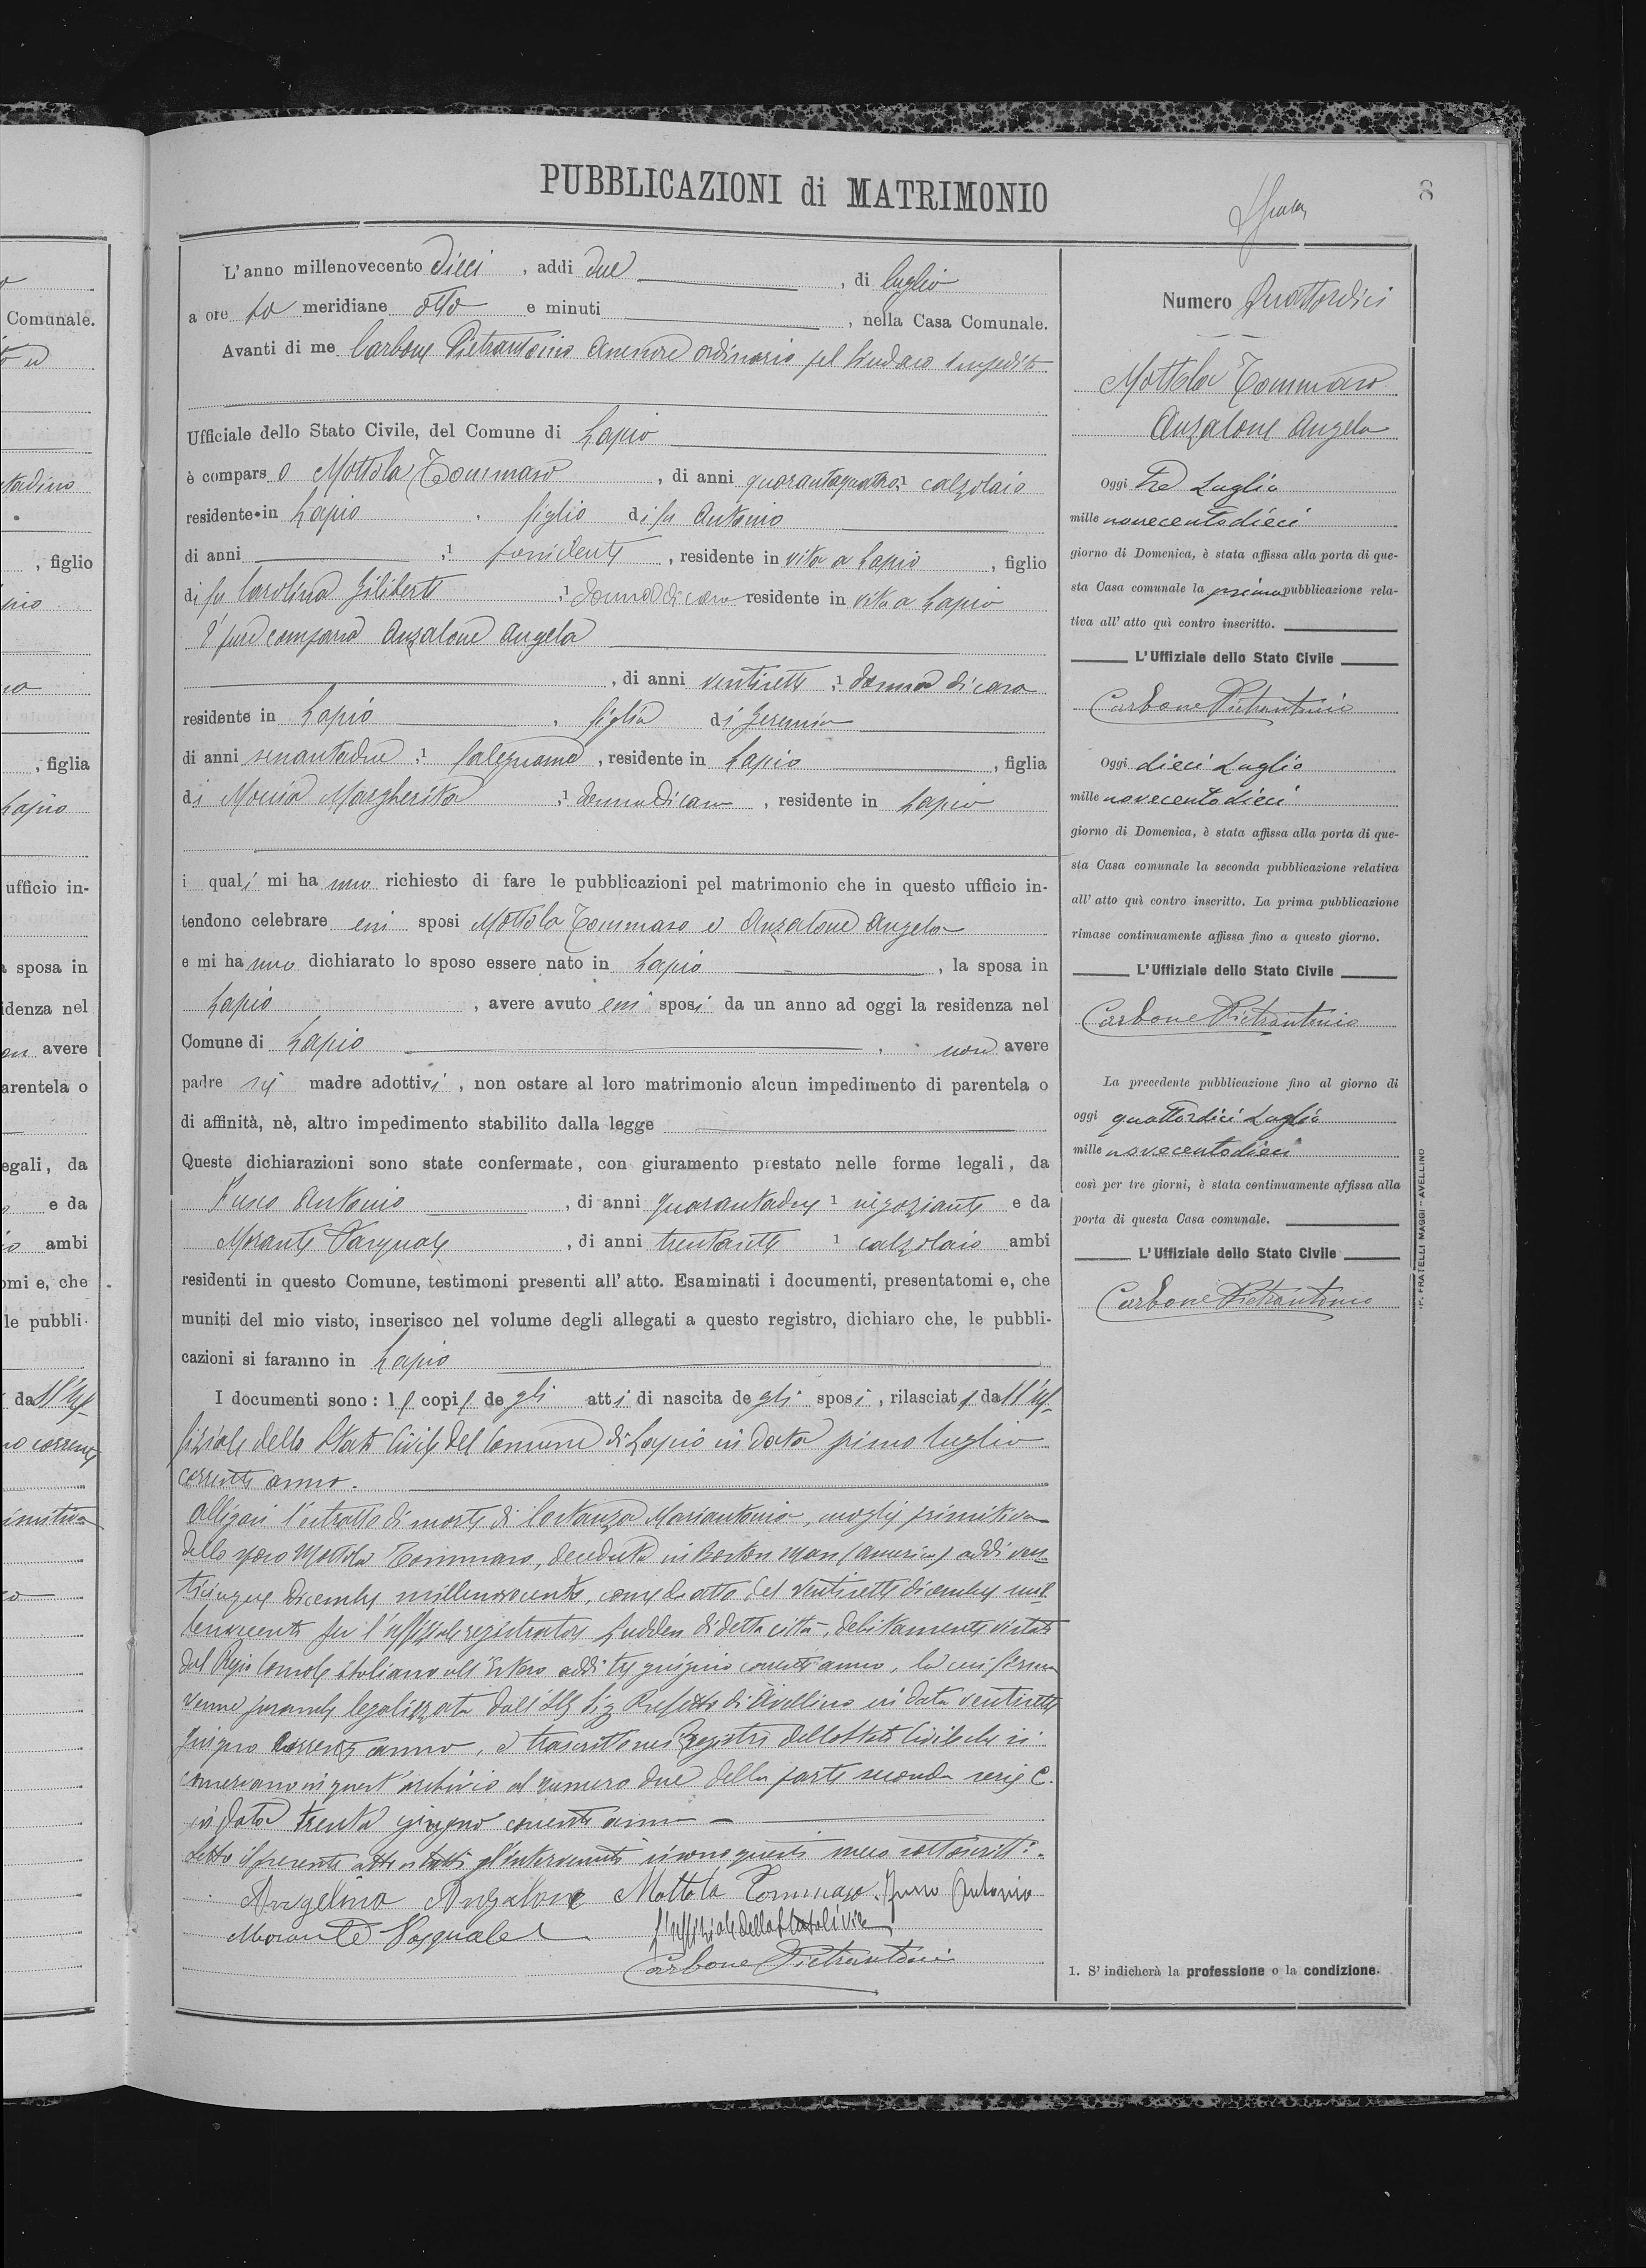 PUBBLICAZIONI di MATRIMONIO
8
L'anno millenovecento dieci, addi due, di luglio
a ore po meridiane otto e minuti, nella Casa Comunale.
Avanti di me Carbone Pietrantonio Assessore ordinario pel Sindaco impedito
Ufficiale dello Stato Civile, del Comune di Lapio
è compars o Mottola Tommaso, di anni quarantaquattro, 1 calzolaio
residente in Lapio, figlio di fu Antonio
di anni, 1 possidente, residente in vita a Lapio, figlio
di fu Carolina Ziliberti, 1 donna di casa residente in vita a Lapio
È pure comparsa Anzalone Angela
, di anni ventisette, 1 donna di casa
residente in Lapio, figlia di Geremia
di anni sessantadue, 1 falegname, residente in Lapio, figlia
di Moccia Margherita, 1 donna di casa, residente in Lapio
i quali mi hanno richiesto di fare le pubblicazioni pel matrimonio che in questo ufficio in-
tendono celebrare essi sposi Mottola Tommaso e Anzalone Angela
e mi hanno dichiarato lo sposo essere nato in Lapio, la sposa in
Lapio, avere avuto essi sposi da un anno ad oggi la residenza nel
Comune di Lapio, non avere
padre nè madre adottivi, non ostare al loro matrimonio alcun impedimento di parentela o
di affinità, nè, altro impedimento stabilito dalla legge
Queste dichiarazioni sono state confermate, con giuramento prestato nelle forme legali, da
Fusco Antonio, di anni quarantadue 1 negoziante e da
Morante Pasquale, di anni trentasette 1 calzolaio ambi
residenti in questo Comune, testimoni presenti all'atto. Esaminati i documenti, presentatomi e, che
muniti del mio visto, inserisco nel volume degli allegati a questo registro, dichiaro che, le pubbli-
cazioni si faranno in Lapio
I documenti sono: le copie degli atti di nascita degli sposi, rilasciate dall'Uf-
fiziale dello Stato Civile del Comune di Lapio in data primo luglio
corrente anno.
Allegasi l'estratto di morte di Costanza Mariantonia, moglie primitiva
dello sposo Mottola Tommaso, deceduta in Boston Mass (America) addì ven-
ticinque dicembre millenovecento, come da atto del ventisette dicembre mil-
lenovecento per l'uffiziale registratore di detta città, debitamente vistato
dal Regio Console Italiano all'Estero addì tre giugno corrente anno, la cui firma
venne legalizzata dall'Ill. Sig. Prefetto di Avellino in data ventisette
giugno corrente anno, e trascritto nei Registri dello Stato Civile che si
conservano in quest'archivio al numero due della parte seconda serie C.
in data trenta giugno corrente anno
Letto il presente atto a tutti gl'intervenuti si sono questi meco sottoscritti.
Angelina Anzalone Mottola Tommaso. Fusco Antonio
Morante Pasquale l'uffiziale dello Stato Civile
Carbone Pietrantonio
Numero Quattordici
Mottola Tommaso
Anzalone Angela
Oggi tre Luglio
mille novecentodieci
giorno di Domenica, è stata affissa alla porta di que-
sta Casa comunale la prima pubblicazione rela-
tiva all'atto quì contro inscritto.
L'Uffiziale dello Stato Civile
Carbone Pietrantonio
Oggi dieci Luglio
mille novecentodieci
giorno di Domenica, è stata affissa alla porta di que-
sta Casa comunale la seconda pubblicazione relativa
all'atto quì contro inscritto. La prima pubblicazione
rimase continuamente affissa fino a questo giorno.
L'Uffiziale dello Stato Civile
Carbone Pietrantonio
La precedente pubblicazione fino al giorno di
oggi quattordici Luglio
mille novecentodieci
così per tre giorni, è stata continuamente affissa alla
porta di questa Casa comunale.
L'Uffiziale dello Stato Civile
Carbone Pietrantonio
1. S'indicherà la professione o la condizione.
TIP. FRATELLI MAGGI - AVELLINO
Comunale.
tadino
, figlio
, figlia
Lapio
ufficio in-
a sposa in
idenza nel
avere
arentela o
egali, da
e da
ambi
omi e, che
le pubbli-
dall'Uf-